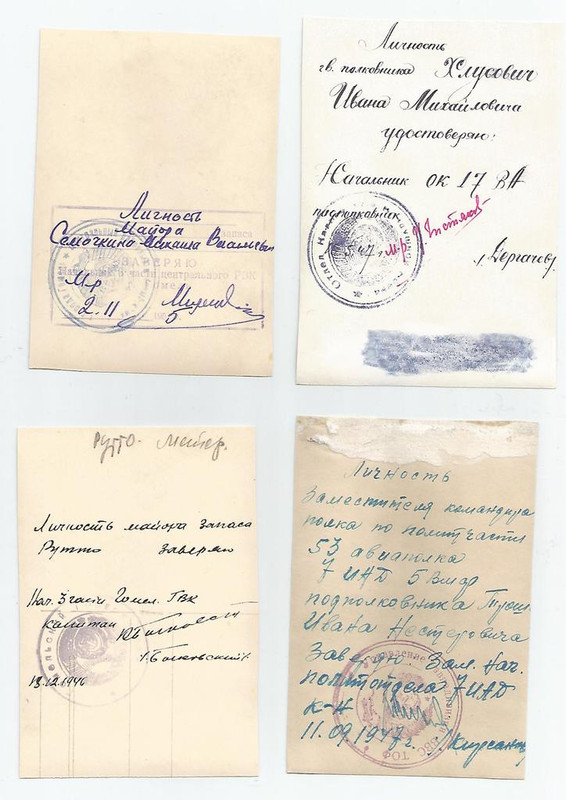 Личность
майора
Семочкина Михаила Васильевича
запаса
ЗАВЕРЯЮ
Начальник части центрального РВК
Гомел
М-р
2.11
5
Личность
гв. полковника Хлусович
Ивана Михайловича
удостоверяю:
Начальник ОК 17 ВА
подполковник
м-р
/Дергачев/
Рутто. Мейер.
Личность майора запаса
Рутто заверяю
Нач. 3 части Гомел. ГВК
капитан
13.12.1946
Личность
Заместителя командира
полка по политчасти
53 авиаполка
7 ИАД 5 ВМАР
подполковника Трош.
Ивана Нестеровича
Заверяю. Зам. Нач.
политотдела 7 ИАД
к-н
11.09.1947г. /Кирсанов
Управление
ВВС ТОФ